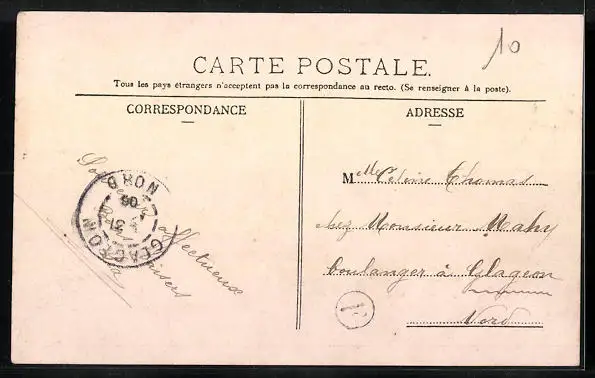 10
CARTE POSTALE.
Tous les pays étrangers n'acceptent pas la correspondance au recto. (Se renseigner à la poste).
CORRESPONDANCE
ADRESSE
affectueux
baisers
GLAGEON
NORD
Melle Celine Thomas
chez Monsieur Mahy
boulanger à Glageon
Nord